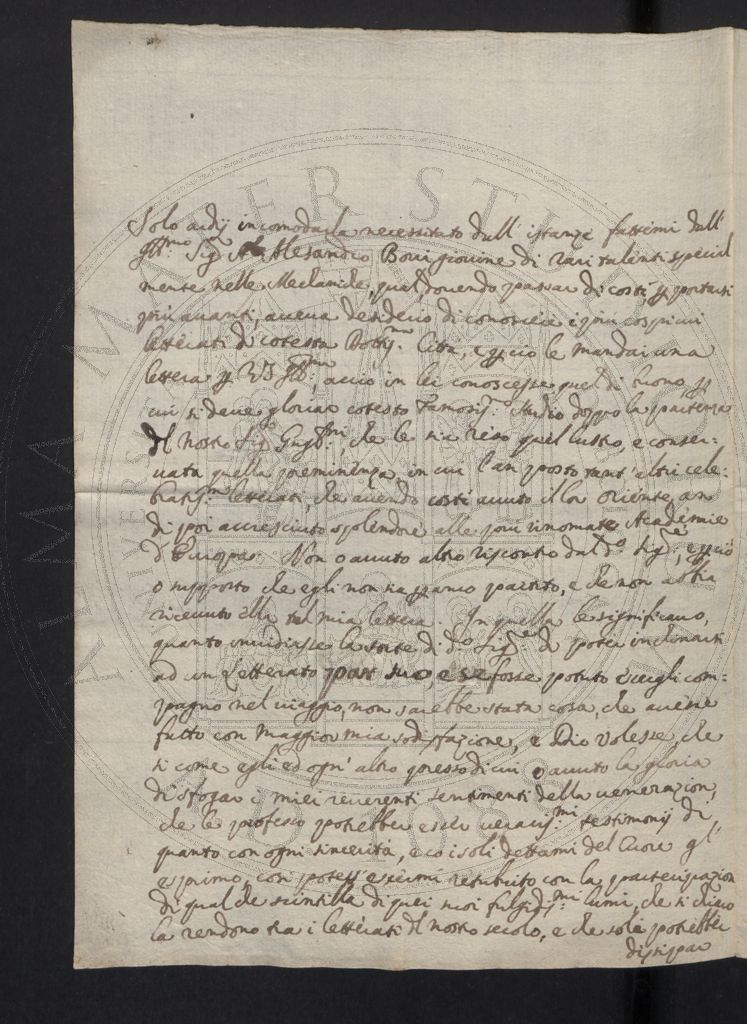 Solo ardij incomodarla necessitato dall' istanze fattemi dall'
Ill.mo Sig.r Alesandro Borri giovine di rari talenti special
mente nelle Mechaniche, qual dovendo passar di costì p portarsi
più avanti, aveva desiderio di conoscere i più cospicui
letterati di cotesta Città, e p ciò le mandai una
lettera p VS Ill.ma, acciò in lei conoscesse quel di buono, p
cui si deve gloriar cotesto Famosis.o Studio doppo la partenza
del nostro Sig.r, che le sia reso quel lustro, e conser-
vata quella preminenza, in cui l'an posto tant' altri cele-
bratis.mi letterati, che avendo costì avuto il lor oriente, an
di poi accresciuto splendore alle più rinomate Academie
d'Europa. Non o avuto altro riscontro dal d.o Sig.re, e p ciò
o supposto che egli non sia p anco partito, e che non abbia
ricevuto la mia lettera. In quella le significavo,
quanto invidiasse la sorte di d.o Sig.re di poter inclinarsi
ad un Letterato par suo, e se fosse potuto esergli com-
pagno nel viaggio, non sarebbe stata cosa, che avesse
fatto con maggior mia sodisfazione, e Dio volesse, che
si come egli ed ogn' altro presso di cui o avuto la gloria
di sfogar i miei reverenti sentimenti della venerazion,
che le professo potrebber esser veracis.mi testimonij di
quanto con ogni sincerità, e co i soli dettami del Cuore gl'
esprimo, così potess' essermi retribuito con la partecipazion
di qual che scintilla di quei suoi fulgidis.mi lumi, che sì chiaro
la rendono tra i letterati del nostro secolo, e che sole potrebber
dissipar
ALMA MATER STUDIORUM